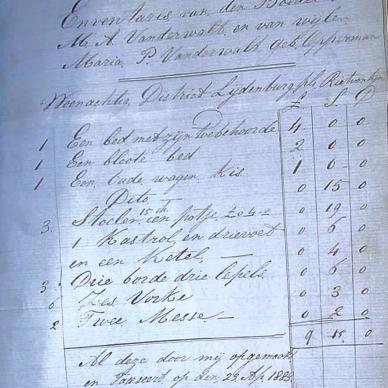 Enventaris van den Boedel
M. A. Vanderwalt, en van wijle
Maria P. Vanderwald, geb. Opperman
Woenachtig, District Lijdenburg, pls Rietfontijn
£ S D
1 Een bed met zijn toebehoorde 4 0 0
1 Een bloote bed 2 0 0
1 Een, oude wagen kis 1 0 0
Dito 0 15 0
3. Stoelen een potje 0 19 0
1 Kastrol, en drievoet 0 6 0
in een Ketel, — 0 4 0
3. Drie borde drie lepels 0 6 0
6 Zes Vorke 0 3 0
2 Twee Messe. — 0 2 0
9 15. 0
Al deze door mij opgemaakt
en Taxeert, op den 23 Ap. 188